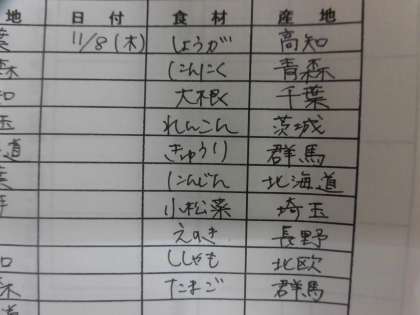 地 日付 食材 産地
葉 11/8(木) しょうが 高知
森 にんにく 青森
知 大根 千葉
玉 れんこん 茨城
道 きゅうり 群馬
葉 にんじん 北海道
小松菜 埼玉
えのき 長野
知 ししゃも 北欧
森 たまご 群馬
道